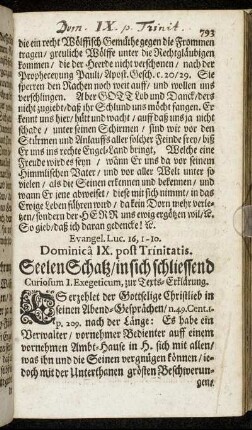 Dom. IX. p. Trinit.
793
die ein recht Wölffisch Gemüthe gegen die Frommen
tragen/ greuliche Wölffe unter die Rechtgläubigen
kommen/ die der Heerde nicht verschonen/ nach der
Prophezeyung Pauli/ Apost. Gesch. c. 20/29. Sie
sperren den Rachen noch weit auff/ und wollen uns
verschlingen. Aber GOTT Lob und Danck/ ders
nicht zugiebt/ daß ihr Schlund uns möcht fangen. Er
kennt uns hier/ hütt und wacht/ auff daß uns ja nicht
schade/ unter seinen Schirmen/ sind wir vor den
Stürmen und Anlauffs aller solcher Feinde frey/ biß
Er uns ins rechte Engel-Land bringt, Welche eine
Freude wird es seyn/ wann Er uns da vor seinem
Himmlischen Vater/ und vor aller Welt unter so
vielen/ als die Seinen erkennen und bekennen/ und
wann Er jene abweiset/ diese mit sich nimmt/ in das
Ewige Leben führen wird/ da kein Dorn mehr verle-
tzen/ sondern der HERR uns ewig ergötzen wil/ &c.
So gieb/ daß ich daran gedencke! &c.
Evangel. Luc. 16, 1-10.
Dominicâ IX. post Trinitatis.
Seelen Schatz/ in sich schliessend
Curiosum I. Exegeticum, zur Texts-Erklärung.
ES erzehlet der Gottselige Christlieb in
seinen Abend-Gesprächen/ n. 49. Cent. 1.
p. 209. nach der Länge: Es habe ein
Verwalter/ vornehmer Bedienter auff einem
vornehmen Ambt-Hause in H. sich mit allen/
was ihn und die Seinen vergnügen können/ je-
doch mit der Unterthanen grösten Beschwerun-
gen/